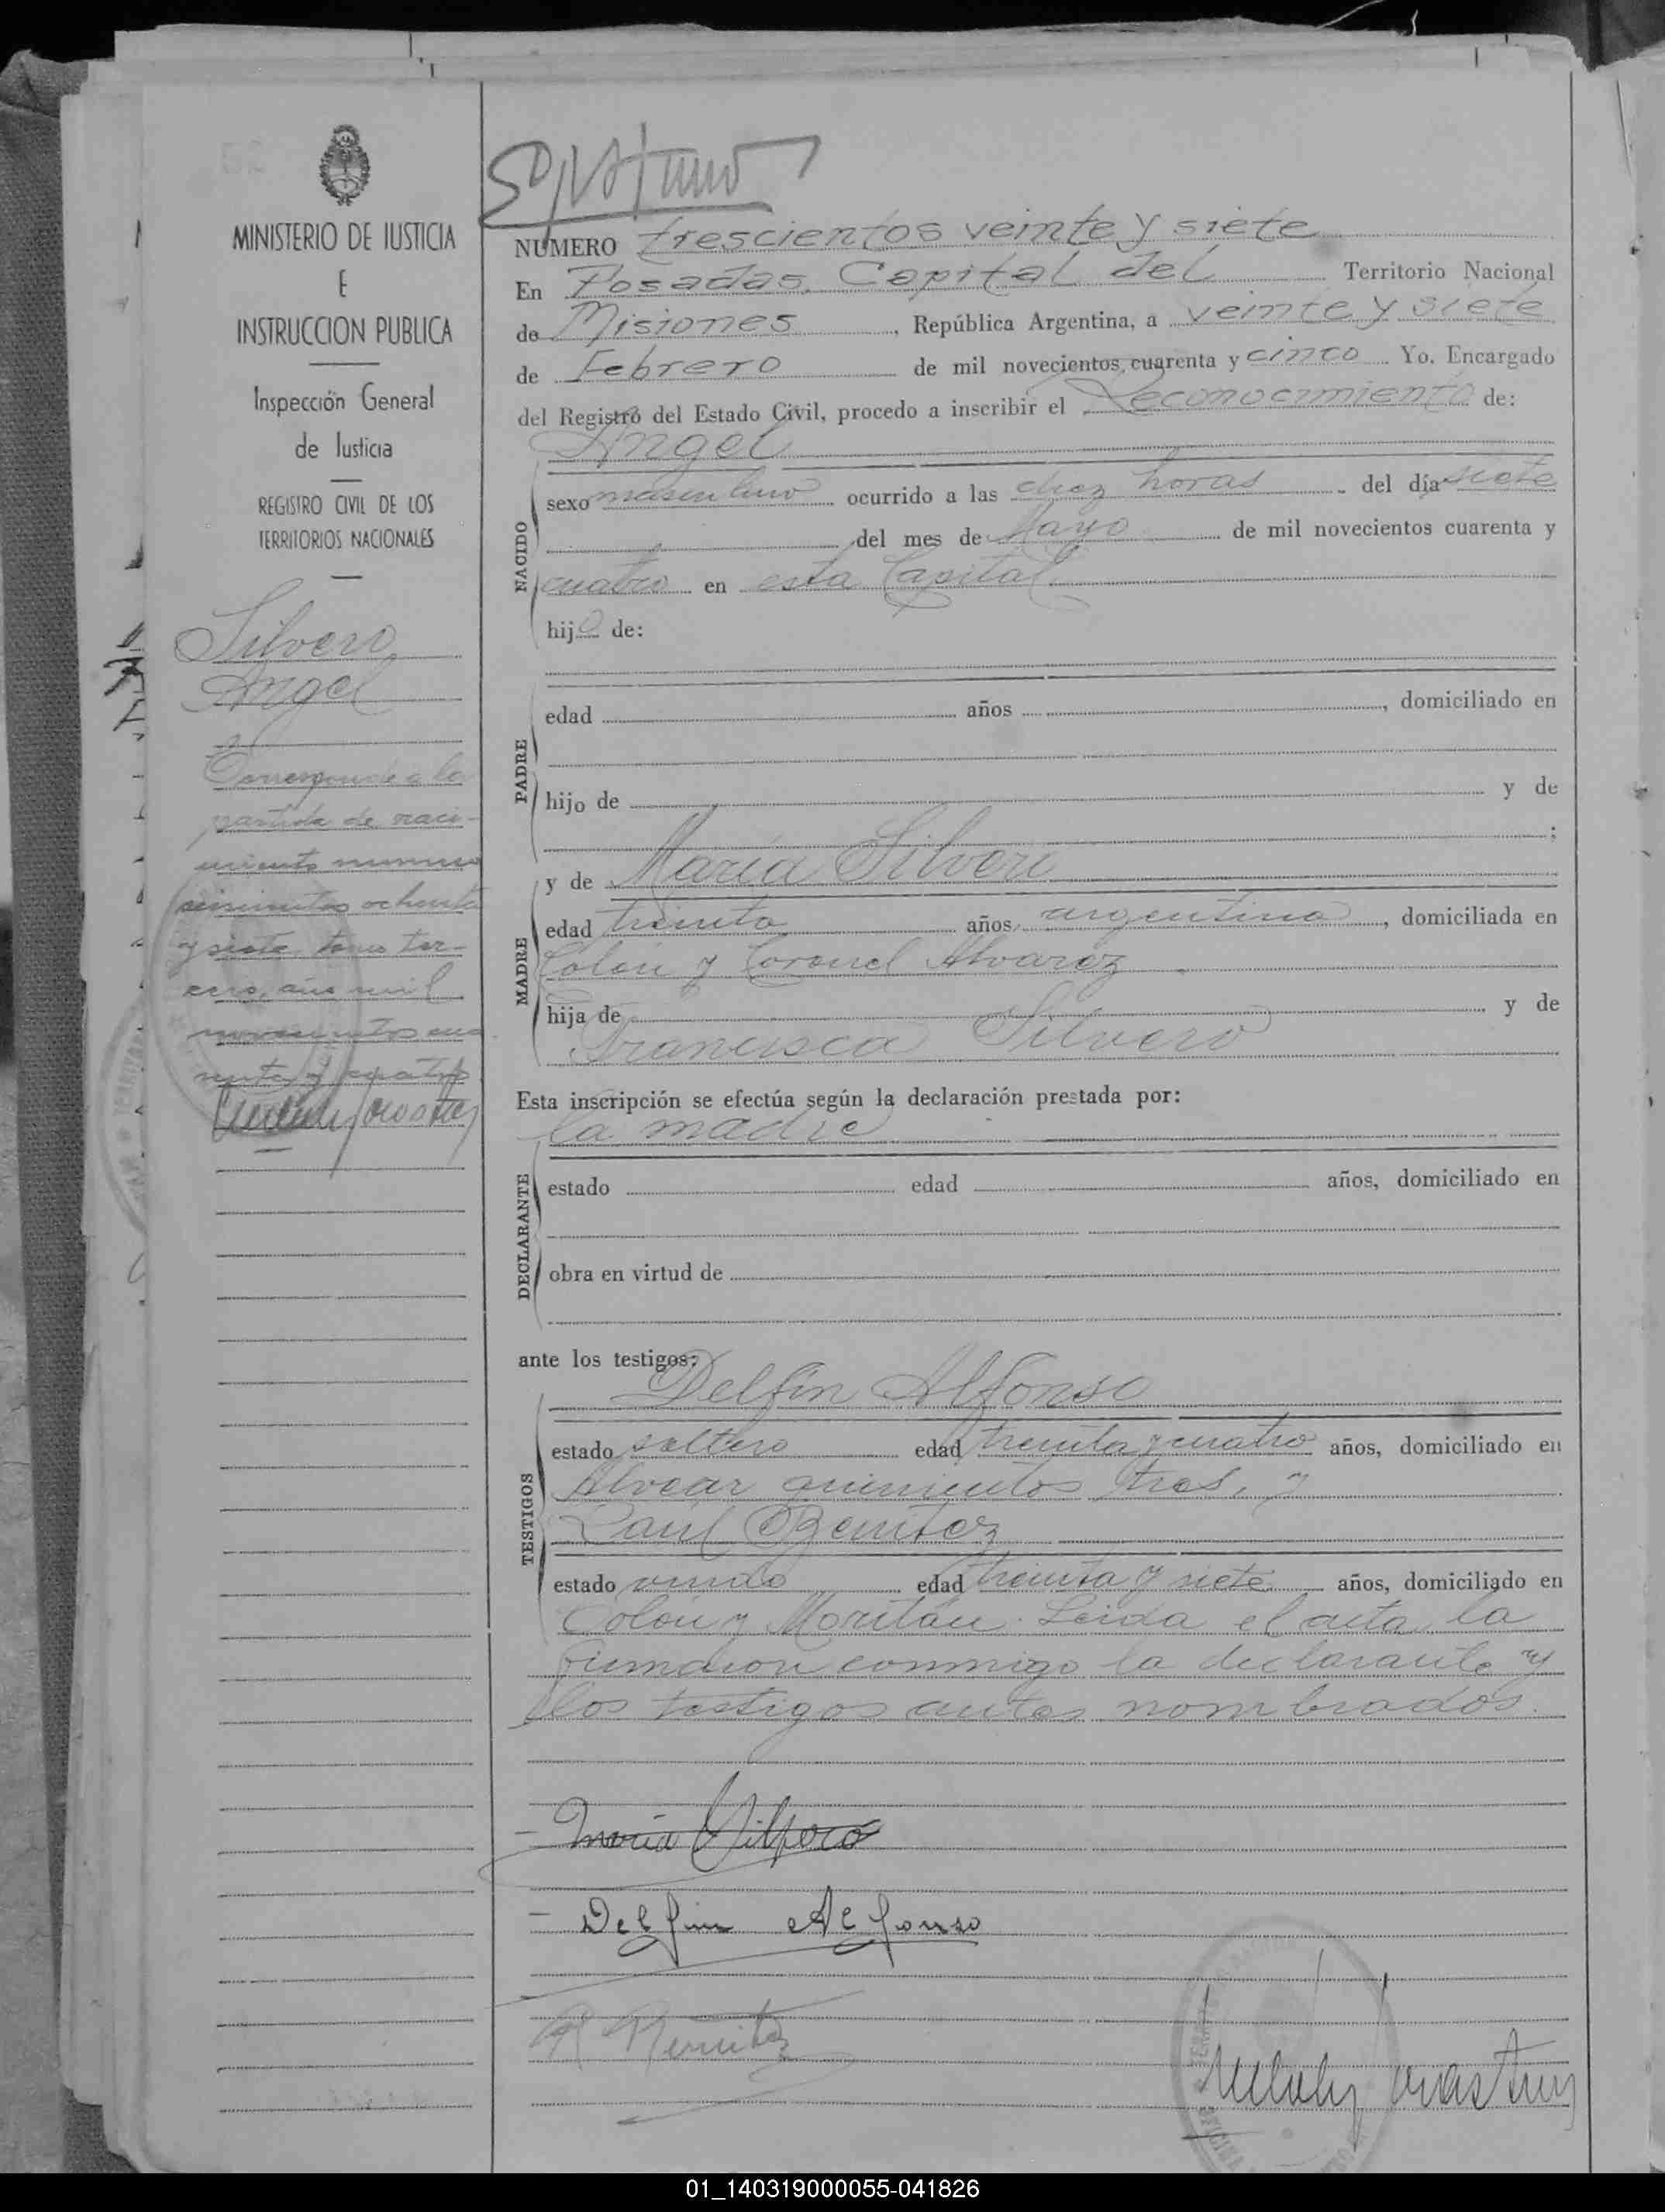 MINISTERIO DE JUSTICIA
E
INSTRUCCION PUBLICA
Inspección General
de Justicia
REGISTRO CIVIL DE LOS
TERRITORIOS NACIONALES
Silvero
Angel
Corresponde a la
partida de naci-
miento numero
seiscientos ochenta
y siete, tomo ter-
cero, año mil
novecientos cua
renta y cuatro
NUMERO trescientos veinte y siete
En Posadas, Capital del Territorio Nacional
de Misiones, República Argentina, a veinte y siete
de Febrero de mil novecientos cuarenta y cinco Yo, Encargado
del Registro del Estado Civil, procedo a inscribir el Reconocimiento de:
Angel
NACIDO
sexo masculino ocurrido a las diez horas del día siete
del mes de Mayo de mil novecientos cuarenta y
cuatro en esta Capital.
hijo de:
PADRE
edad años , domiciliado en
hijo de y de
;
MADRE
y de María Silvero
edad treinta años, argentina, domiciliada en
Colón y Coronel Alvarez
hija de y de
Francisca Silvero
Esta inscripción se efectúa según la declaración prestada por:
la madre
DECLARANTE
estado edad años, domiciliado en
obra en virtud de
ante los testigos:
Delfín Alfonso
TESTIGOS
estado soltero edad treinta y cuatro años, domiciliado en
Alvear quinientos tres, y
Raúl Benítez
estado viudo edad treinta y siete años, domiciliado en
Colón y Moritán. Leída el acta, la
firmaron conmigo la declarante y
los testigos antes nombrados.
María Silvero
Delfin Alfonso
R Benitez
01_140319000055-041826